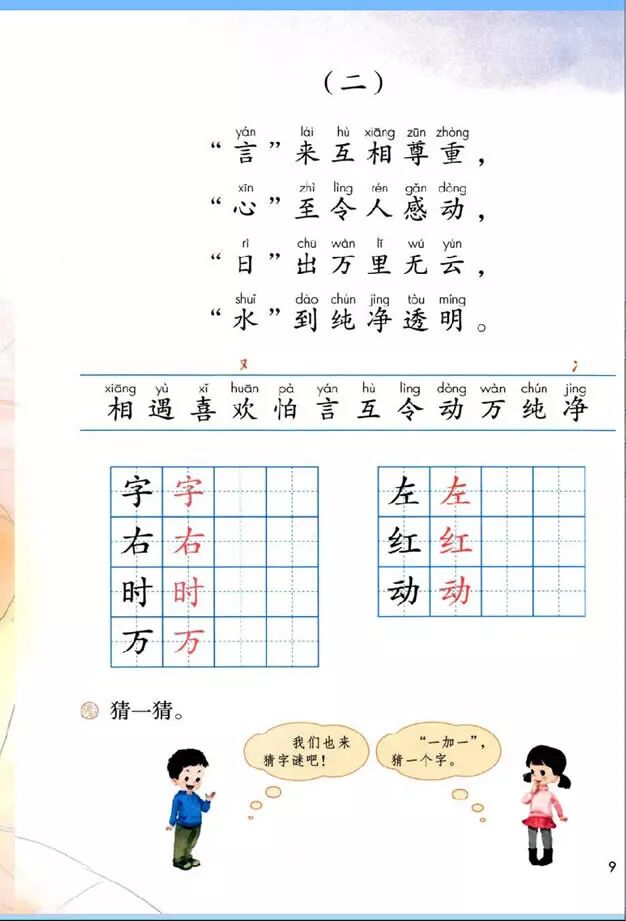 （二）
yán lái hù xiāng zūn zhòng
“言”来互相尊重，
xīn zhì lìng rén gǎn dòng
“心”至令人感动，
rì chū wàn lǐ wú yún
“日”出万里无云，
shuǐ dào chún jìng tòu míng
“水”到纯净透明。
又 冫
xiāng yù xǐ huān pà yán hù lìng dòng wàn chún jìng
相遇喜欢怕言互令动万纯净
字字 左左
右右 红红
时时 动动
万万
猜一猜。
我们也来
猜字谜吧！
“一加一”，
猜一个字。
9